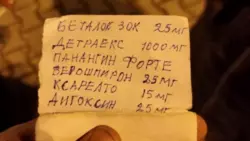 БЕТАЛОК ЗОК 25 МГ
ДЕТРАЕКС 1000 МГ
ПАНАНГИН ФОРТЕ
ВЕРОШПИРОН 25 МГ
КСАРЕЛТО 15 МГ
ДИГОКСИН 25 МГ